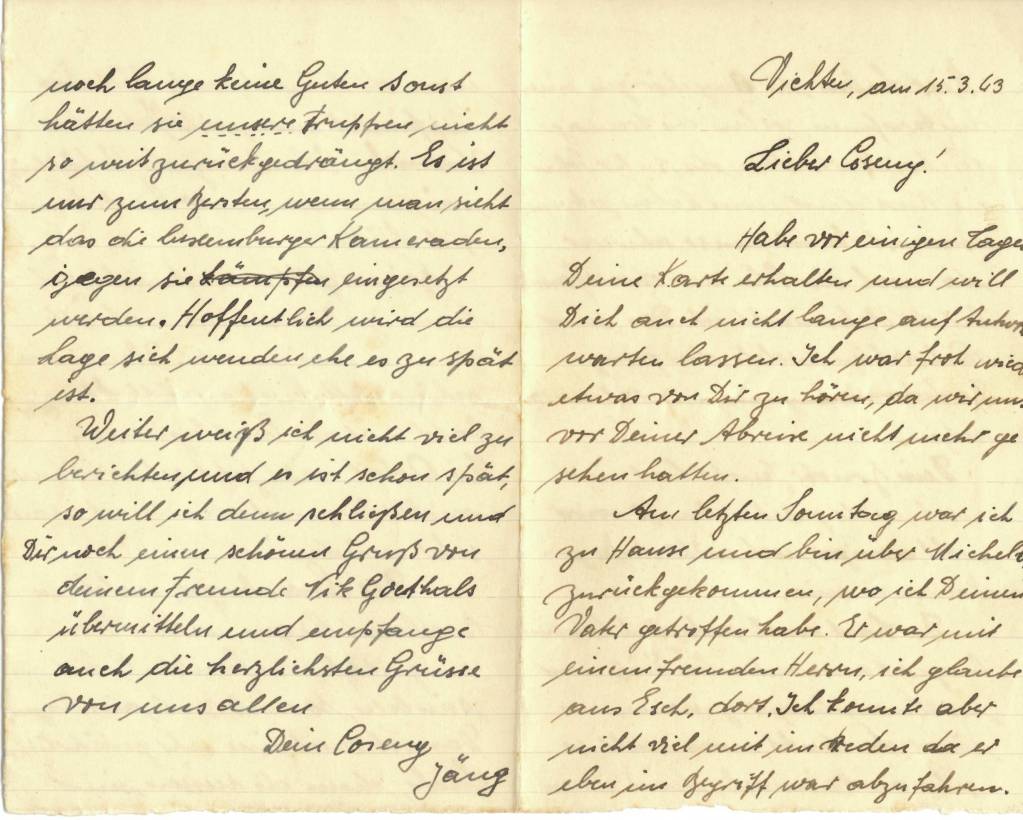 noch lange keine Guten sonst
hätten sie unsere Truppen nicht
so weit zurückgedrängt. Es ist
nur zum Bersten, wenn man sieht
das die luxemburger Kameraden,
gegen sie kämpfen eingesetzt
werden. Hoffentlich wird die
Lage sich wenden ehe es zu spät
ist.
Weiter weiß ich nicht viel zu
berichten und es ist schon spät,
so will ich denn schließen und
Dir noch einen schönen Gruß von
deinem Freunde Nik Goethals
übermitteln und empfange
auch die herzlichsten Grüsse
von uns allen
Dein Coseng
Jäng
Vichten, am 15.3.43
Lieber Coseng!
Habe vor einigen Tagen
Deine Karte erhalten und will
Dich auch nicht lange auf Antwo
warten lassen. Ich war froh wied
etwas von Dir zu hören, da wir uns
vor Deiner Abreise nicht mehr ge
sehen hatten.
Am letzten Sonntag war ich
zu Hause und bin über Michel
zurückgekommen, wo ich Deinen
Vater getroffen habe. Er war mit
einem fremden Herrn, ich glaube
aus Esch, dort. Ich konnte aber
nicht viel mit im reden da er
eben im Begriff war abzufahren.